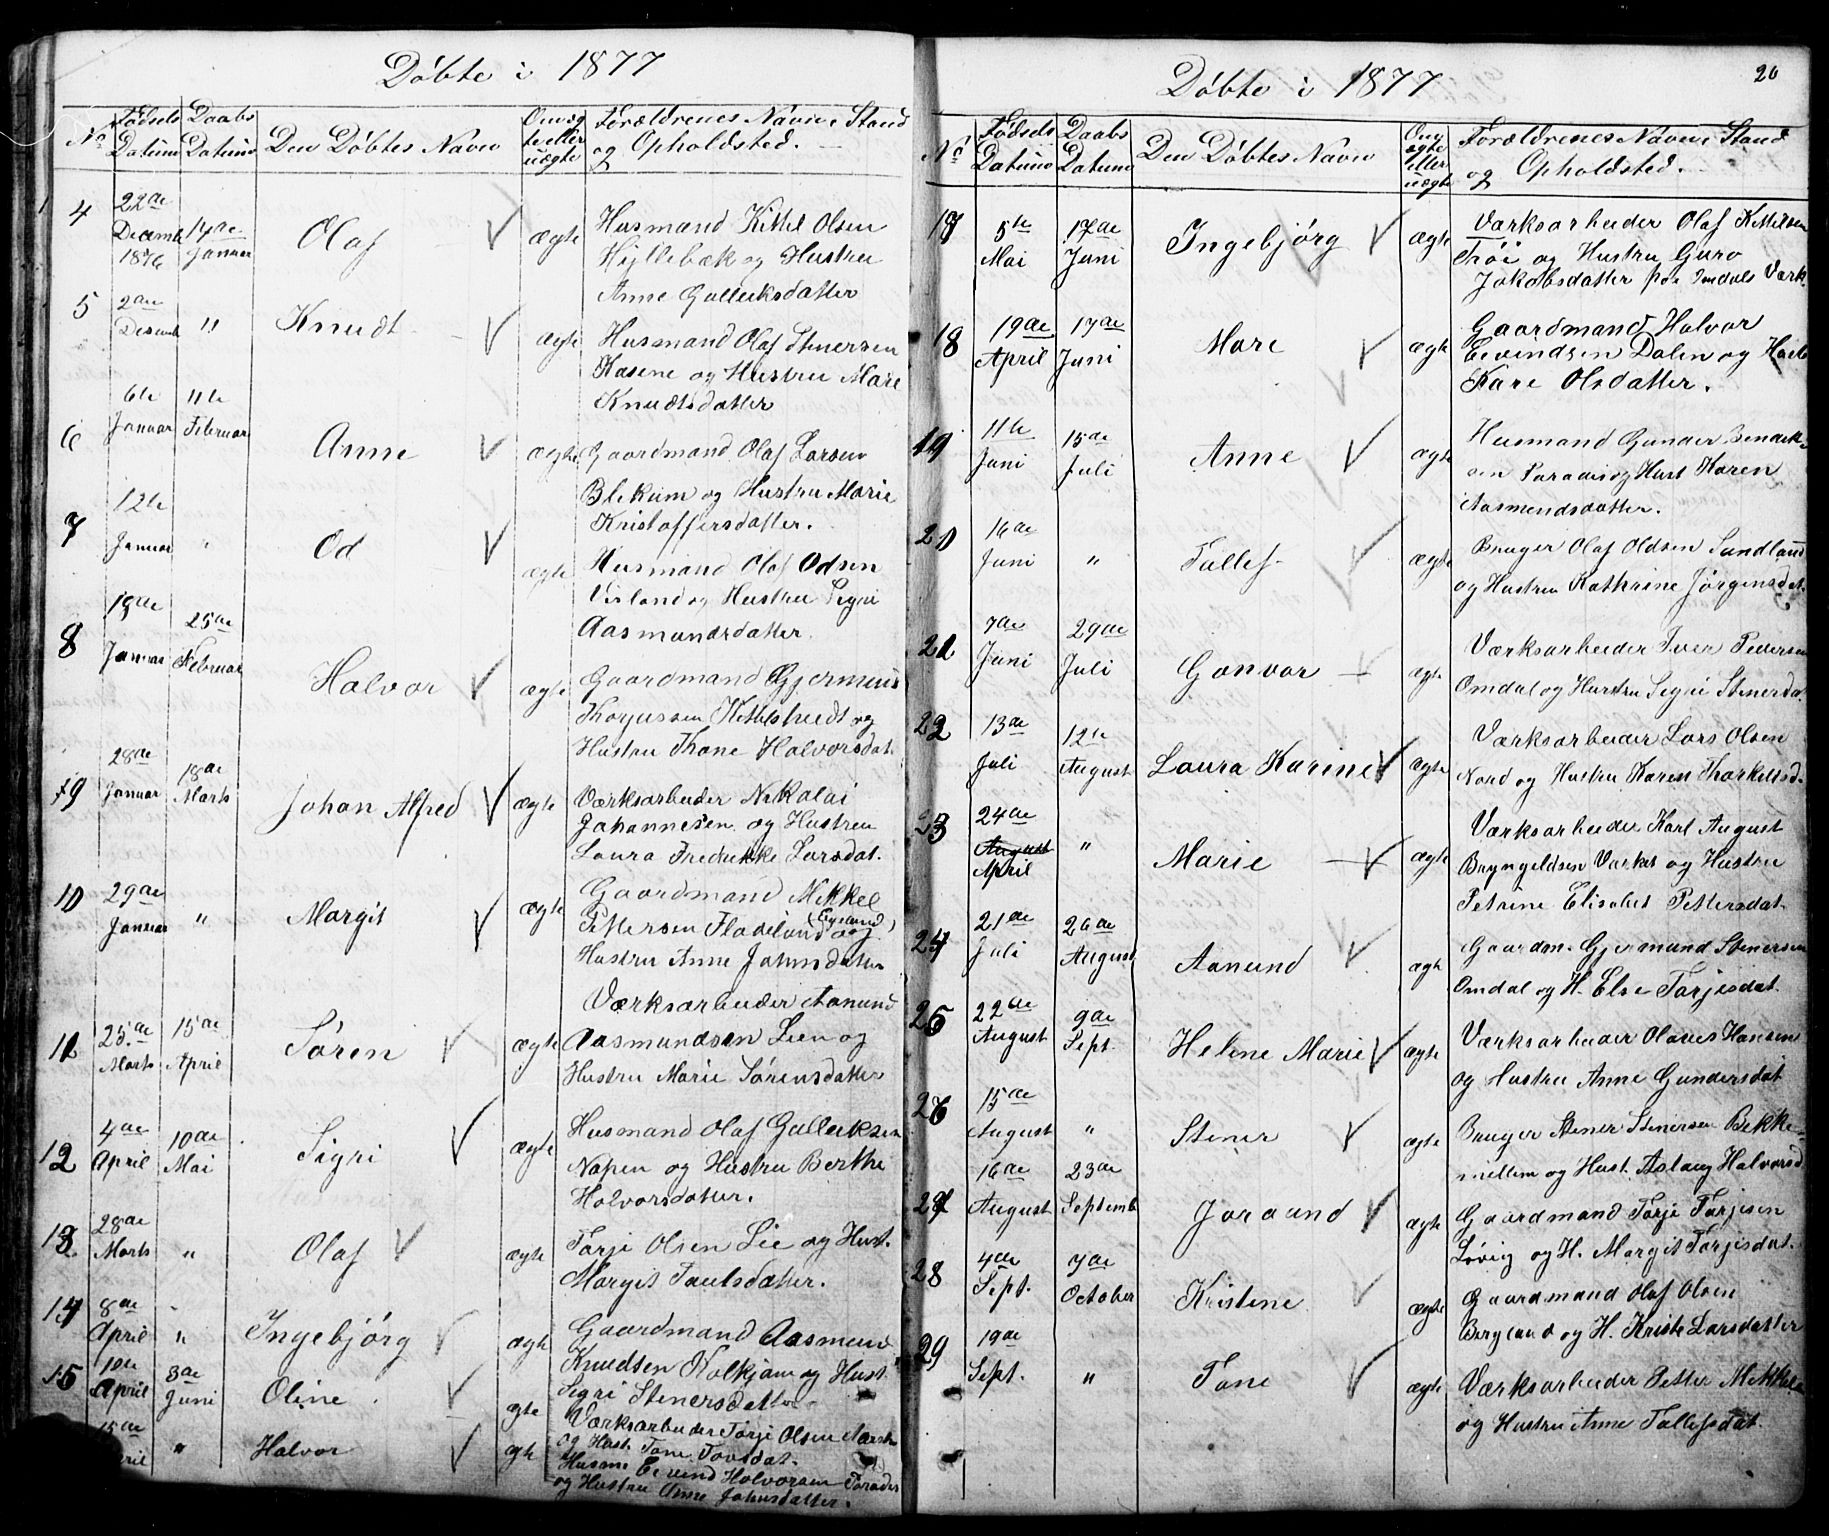 Døbte i 1877
No
Fødsels Datum
Daabs Datum
Den Døbtes Navn
Om ægte eller uægte
Forældrenes Navn, Stand
og Opholdsted.
4
22de Decemb 1876
14de Januar
Olaf
ægte
Husmand Kittil Olsen
Hyllebæk og Hustru
Anne Gulleiksdatter
5
2den Desemb
"
Knudt
ægte
Husmand Olaf Stenersen
Kasene og Hustru Mare
Knudtsdatter
6
6te Januar
11te Februar
Anne
ægte
Gaardmand Olaf Larsen
Blekum og Hustru Marie
Kristoffersdatter.
7
12te Januar
"
Od
ægte
Husmand Olaf Odsen
Verland og Hustru Sigri
Aasmundsdatter.
8
19de Januar
25de Februar
Halvor
ægte
Gaardmand Gjermund
Thorjussen Kittelshudt og
Hustru Thone Halvorsdat.
9
28de Januar
18de Marts
Johan Alfred
ægte
Værksarbeider Nikolai
Johannesen og Hustru
Laura Fredrikke Larsdat.
10
29de Januar
"
Margit
ægte
Gaardmand Mikkel
Pettersen Fladeland (Eysund) og
Hustru Anne Johnsdatter
11
25de Marts
15de April
Søren
ægte
Værksarbeider Aanund
Aasmundsen Lien og
Hustru Marie Sørensdatter
12
4de April
10de Mai
Sigri
ægte
Husmand Olaf Gulleiksen
Napen og Hustru Berthe
Halvorsdatter.
13
28de Marts
"
Olaf
ægte
Torje Olsen Lie og Hust.
Margit Paulsdatter.
14
8de April
"
Ingebjørg
ægte
Gaardmand Aasmund
Knudsen Kolkjøn og Hust
Sigri Stenersdatter
15
10de April
3de Juni
Oline
ægte
Værksarbeider Torje Olsen
og Hust. Tone Tovsdat.
15de April
"
Halvor
ægte
Husm Eivind Halvorsen
og Hustru Anne Johnsdatter.
Døbte i 1877
20
No
Fødsels Datum
Daabs Datum
Den Døbtes Navn
Om ægte eller uægte
Forældrenes Navn, Stand
og Opholdsted.
17
5te Mai
17de Juni
Ingebjørg
ægte
Værksarbeider Olaf Kittilsen
Trøi og Hustru Guro
Jakobsdatter paa Omdals Værk
18
19de April
17de Juni
Mare
ægte
Gaardmand Halvor
Eivindsen Dalen og Hust
Kare Olsdatter.
19
11te Juni
15de Juli
Anne
ægte
Husmand Gunder Bendik-
sen Paradis og Hust Karen
Aasmundsdatter.
20
16de Juni
"
Tallef
ægte
Bruger Olaf Oldsen Sundland
og Hustru Kathrine Jørgensdat.
21
7de Juni
29de Juli
Gonvor
ægte
Værksarbeider Iver Pedersen
Omdal og Hustru Sigri Stenersda.
22
13de Juli
12te August
Laura Karine
ægte
Værksarbeider Lars Olsen
Nord og Hustru Karen Thorkelsd.
23
24de August April
"
Marie
ægte
Værksarbeider Karl August
Bryngeldsen Værket og Hustru
Petrine Elisabet Pettersdat.
24
21de Juli
26de August
Aanund
ægte
Gaardm. Gjermund Stenersen
Omdal og H. Else Torjisdat.
25
22de August
9de Sept.
Helene Marie
ægte
Værksarbeider Olaves Hansen
og Hustru Anne Gundersdat
26
15de August
"
Stener
ægte
Bruger Stener Stenersen Bekke-
mellem og Hust. Aslaug Halvorsd
27
16de August
23de Septemb
Joraand
ægte
Gaardmand Torje Torjisen
Løvig og H. Margit Torjisdat.
28
4de Sept.
7de October
Kristene
ægte
Gaardmand Olaf Olsen
Bergland og H. Kriste Larsdatter
29
19de Sept.
"
Tone
ægte
Værksarbeider Petter Mikkels
og Hustru Anne Tallefsdat.